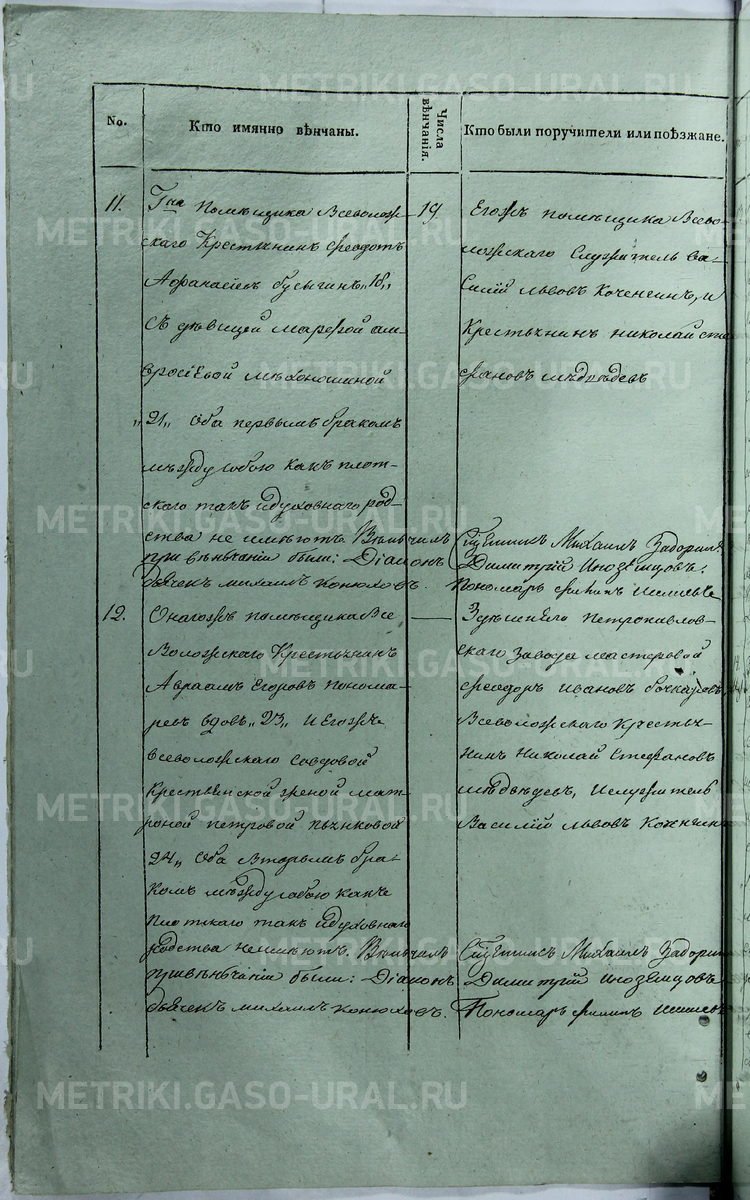 No.
Кто имянно вѣнчаны.
Числа вѣнчанія.
Кто были поручители или поѣзжане.
11.
Гна помѣщика Всеволож-
скаго Крестьянинъ Феодотъ
Афанасіевъ Бусыгинъ „18„
Съ дѣвицей Марѳой Ам-
вросіевой Мѣхоношиной
„21„ Оба первымъ бракомъ
между собою какъ плот-
скаго такъ и духовнаго род-
ства не имѣютъ. Вѣнчалъ
при вѣнчаніи были: Діаконъ
дьячекъ Михаилъ Конюховъ.
19
Егожъ помѣщика Всево-
ложскаго Служитель Ва-
силій Львовъ Коченгинъ, и
Крестьянинъ Николай Сте
фановъ Медведевъ
Священникъ Михаилъ Задорин
Димитрій Иноземцовъ.
Пономарь Филипъ
12.
Онагожъ помѣщика Все
воложскаго Крестьянинъ
Авраамъ Егоровъ Понома-
ревъ вдовъ „23„ и Егожъ
Всеволожскаго Совдовой
Крестьянской женой Мат-
роной Петровой Пьянковой
24„ Оба Вторымъ бра-
комъ между собою какъ
плотскаго такъ и духовнаго
родства неимѣютъ. Вѣнчалъ
при вѣнчаніи были: Діаконъ
дьячекъ Михаилъ Конюховъ.
Здѣшняго Петропавлов-
скаго Завода мастеровой
Феодоръ Ивановъ
Всеволожскаго Крестья-
нинъ Николай Стефановъ
Медведевъ, и служитель
Василій Львовъ
Священникъ Михаилъ Задорин
Димитрій Иноземцовъ
Пономарь Филипъ
METRIKI.GASO-URAL.RU